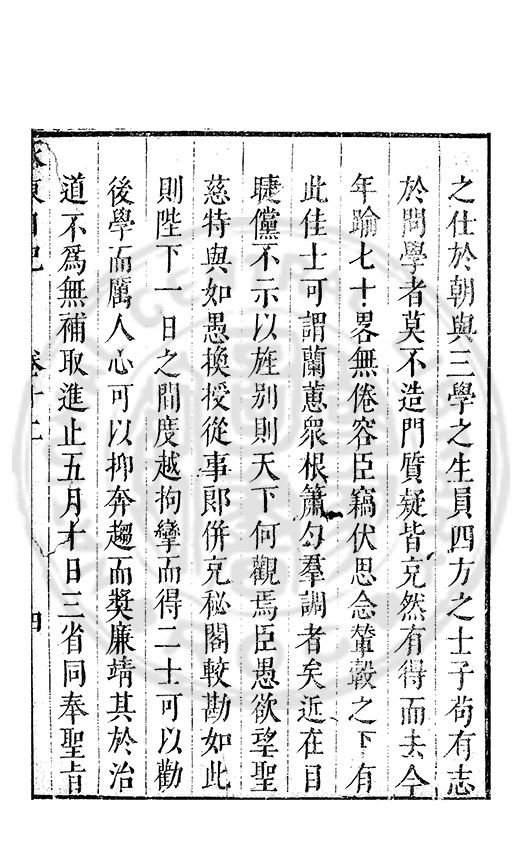 之仕於朝與三學之生員四方之士子苟有志
於問學者莫不造門質疑皆充然有得而去今
年踰七十畧無倦容臣竊伏思念輦轂之下有
此佳士可謂蘭蕙衆根簫勺羣調者矣近在目
睫儻不示以旌别則天下何觀焉臣愚欲望聖
慈特與如愚換授從事郎併充秘閣較勘如此
則陛下一日之間度越拘攣而得二士可以勸
後學而厲人心可以抑奔趨而奬廉靖其於治
道不爲無補取進止五月十日三省同奉聖旨
東日記 卷十二 四